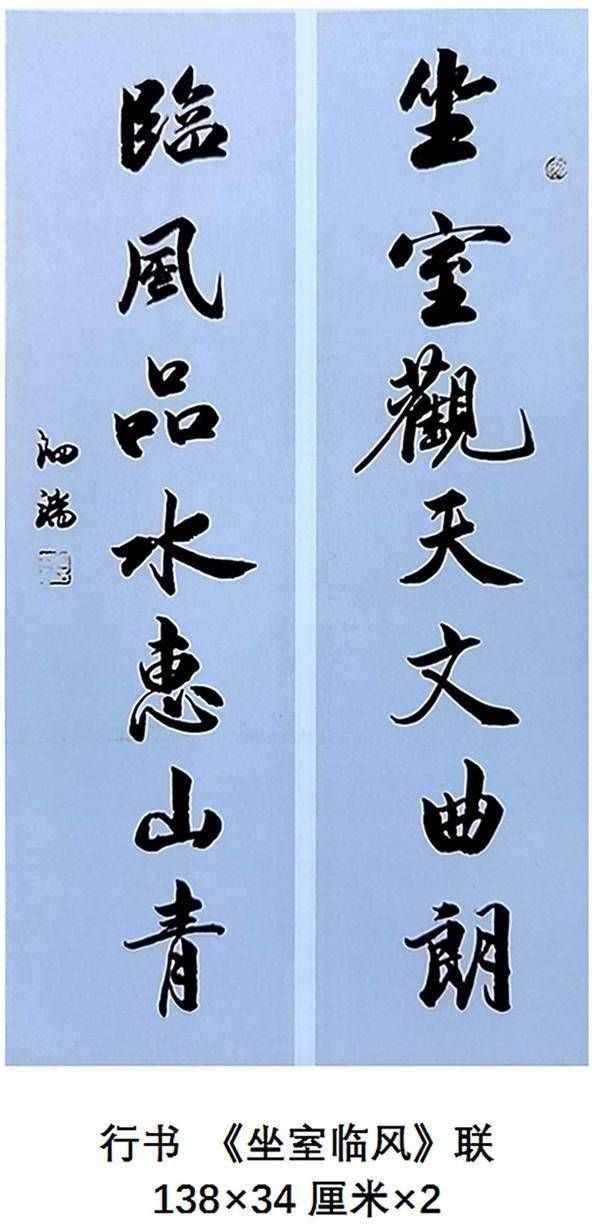 坐室觀天文曲朗
臨風品水惠山青
泗瑞
行书 《坐室临风》联
138×34 厘米×2